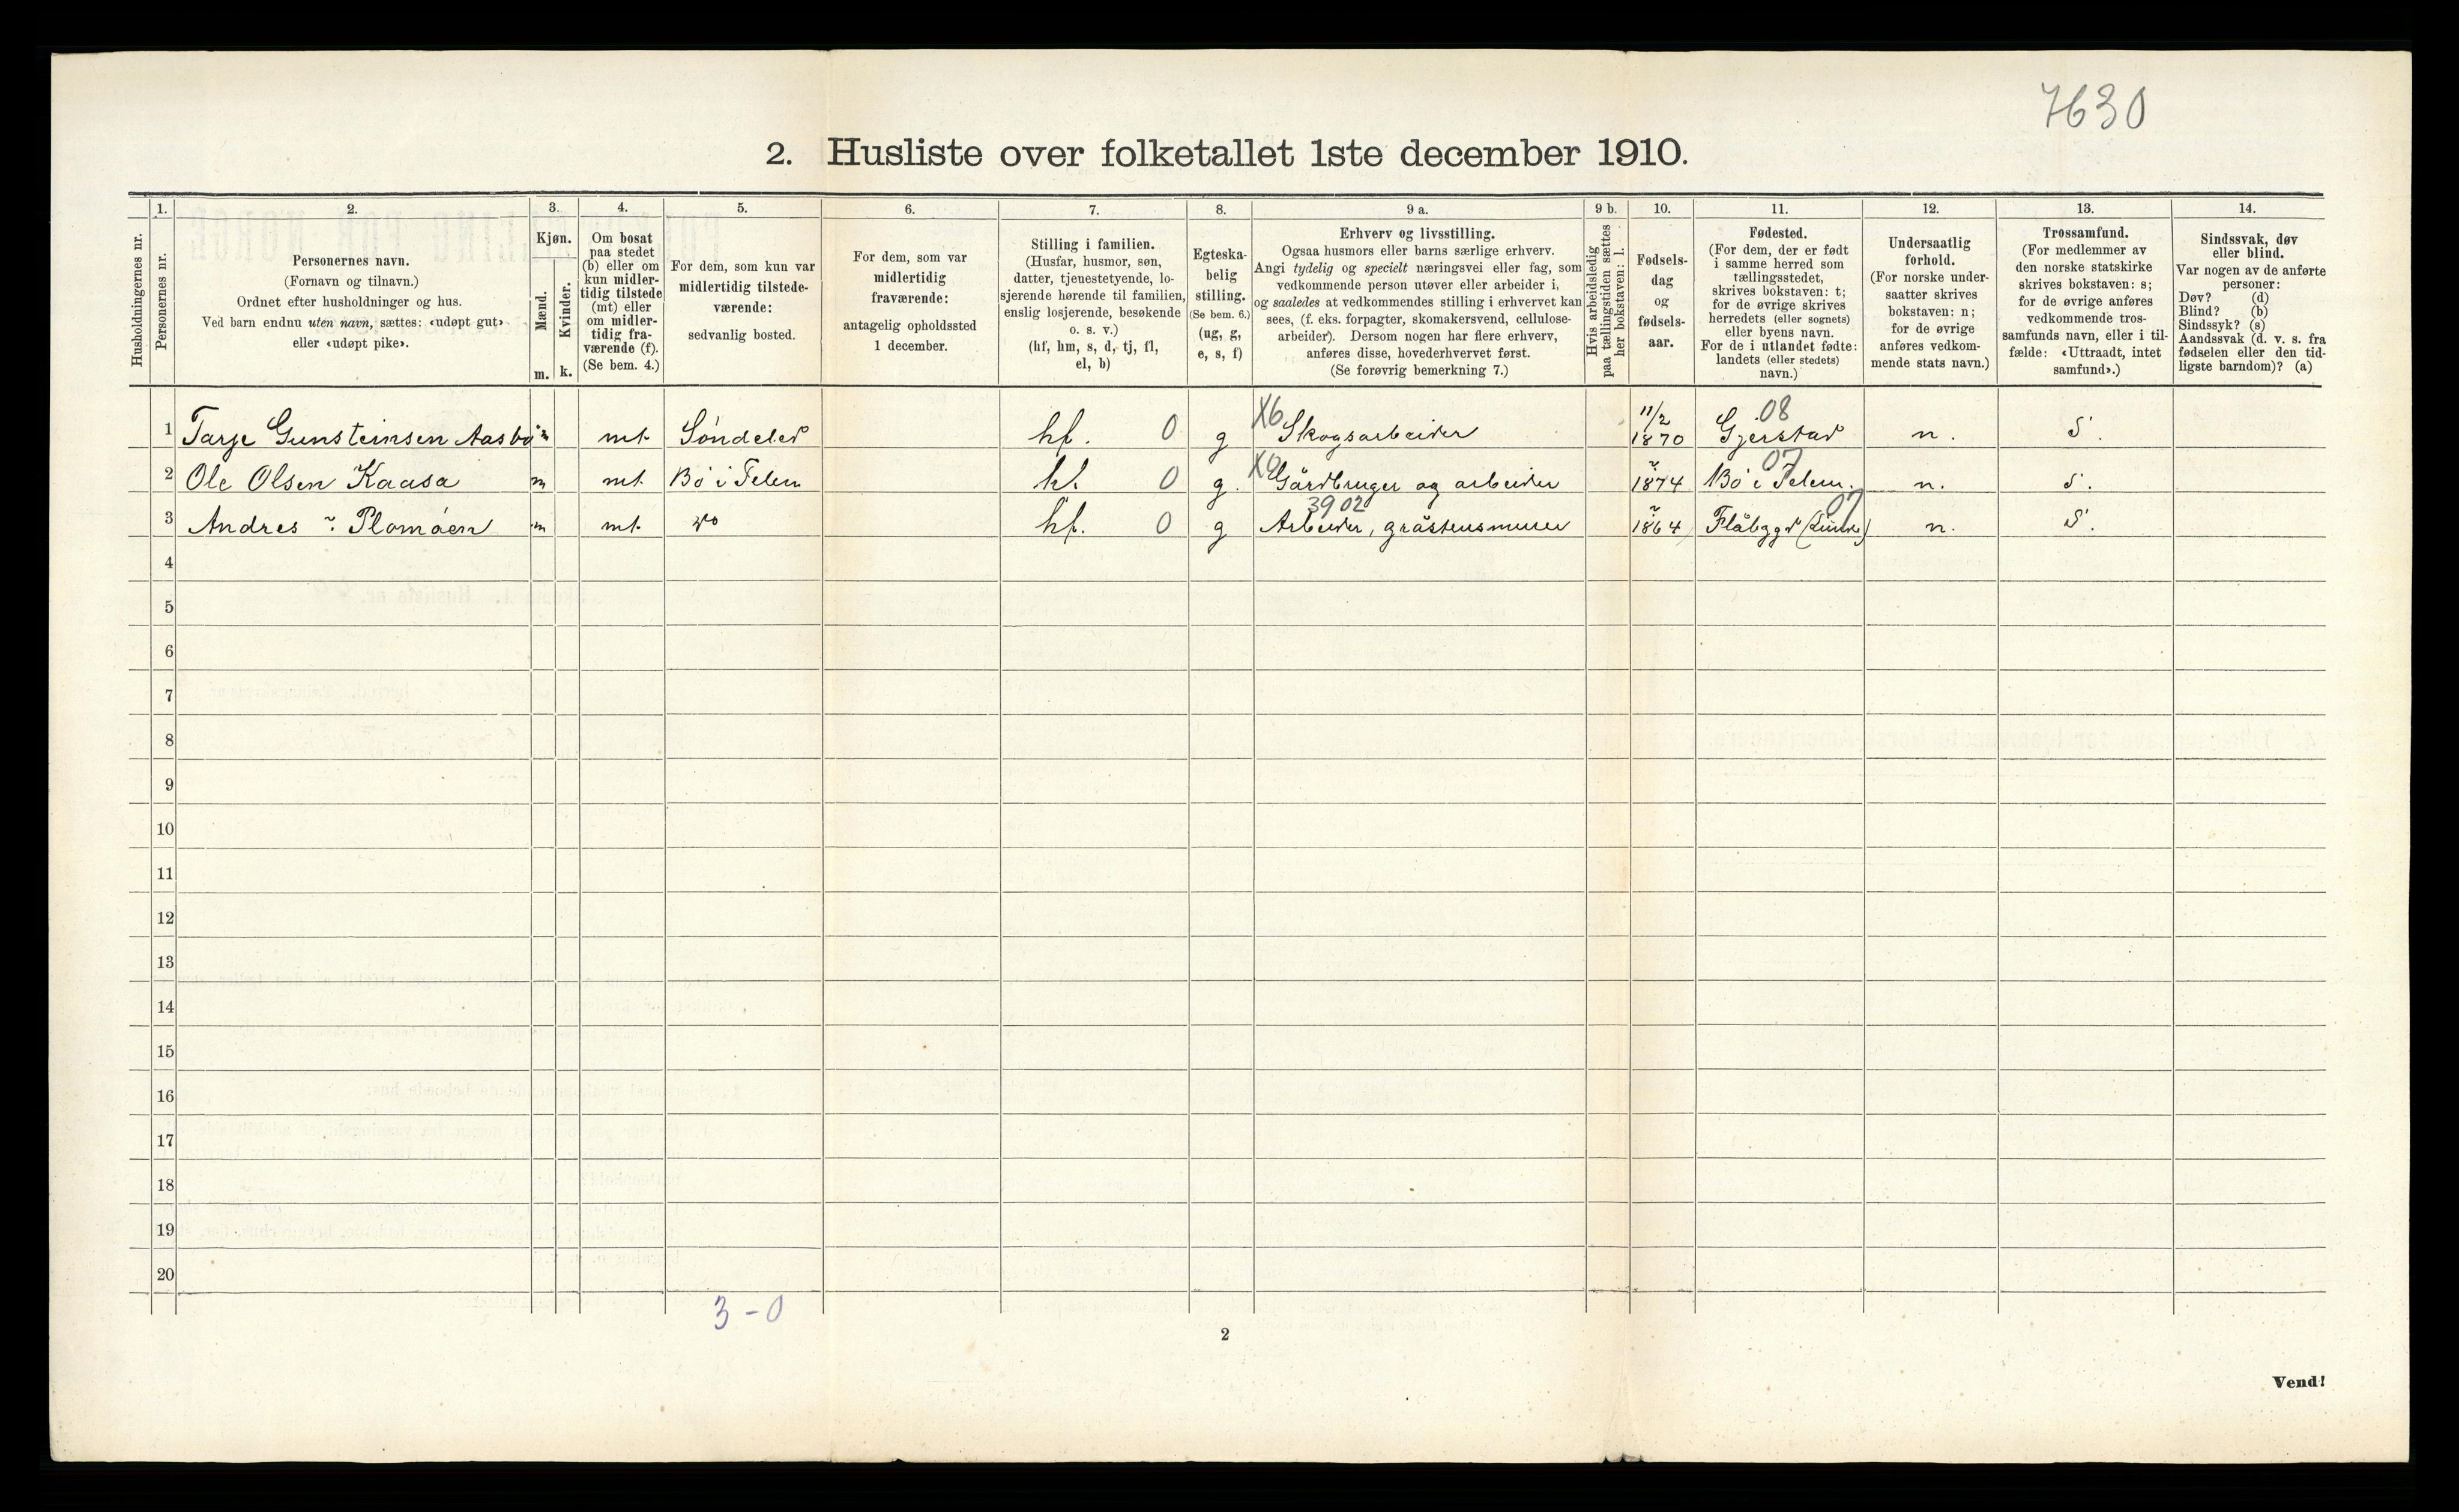 7630
2. Husliste over folketallet 1ste december 1910.
Husholdningernes nr.
1.
Personernes nr.
2.
Personernes navn.
(Fornavn og tilnavn.)
Ordnet efter husholdninger og hus.
Ved barn endnu uten navn, sættes: «udøpt gut»
eller «udøpt pike».
3.
Kjøn.
Mænd.
Kvinder.
m. k.
4.
Om bosat
paa stedet
(b) eller om
kun midler-
tidig tilstede
(mt) eller
om midler-
tidig fra-
værende (f).
(Se bem. 4.)
5.
For dem, som kun var
midlertidig tilstede-
værende:
sedvanlig bosted.
6.
For dem, som var
midlertidig
fraværende:
antagelig opholdssted
1 december.
7.
Stilling i familien.
(Husfar, husmor, søn,
datter, tjenestetyende, lo-
sjerende hørende til familien,
enslig losjerende, besøkende
o. s. v.)
(hf, hm, s, d, tj, fl,
el, b)
8.
Egteska-
belig
stilling.
(Se bem. 6.)
(ug, g,
e, s, f)
9 a.
Erhverv og livsstilling.
Ogsaa husmors eller barns særlige erhverv.
Angi tydelig og specielt næringsvei eller fag, som
vedkommende person utøver eller arbeider i,
og saaledes at vedkommendes stilling i erhvervet kan
sees, (f. eks. forpagter, skomakersvend, cellulose-
arbeider). Dersom nogen har flere erhverv,
anføres disse, hovederhvervet først.
(Se forøvrig bemerkning 7.)
9 b.
Hvis arbeidsledig
paa tællingstiden sættes
her bokstaven: l.
10.
Fødsels-
dag
og
fødsels-
aar.
11.
Fødested.
(For dem, der er født
i samme herred som
tællingsstedet,
skrives bokstaven: t;
for de øvrige skrives
herredets (eller sognets)
eller byens navn.
For de i utlandet fødte:
landets (eller stedets)
navn.)
12.
Undersaatlig
forhold.
(For norske under-
saatter skrives
bokstaven: n;
for de øvrige
anføres vedkom-
mende stats navn.)
13.
Trossamfund.
(For medlemmer av
den norske statskirke
skrives bokstaven: s;
for de øvrige anføres
vedkommende tros-
samfunds navn, eller i til-
fælde: «Uttraadt, intet
samfund».)
14.
Sindssvak, døv
eller blind.
Var nogen av de anførte
personer:
Døv? (d)
Blind? (b)
Sindssyk? (s)
Aandssvak (d. v. s. fra
fødselen eller den tid-
ligste barndom)? (a)
1 Tarje Gunsteinsen Aasbø m mt. Söndeled hf. 0 g X6 Skogsarbeider 11/2 1870 Gjerstad 08 n. S.
2 Ole Olsen Kaasa m mt. Bö i Telem hf. 0 g. X0 Gårdbruger og arbeider ~ 1874 Bö i Telem. 07 n. S.
3 Andres ~ Plomöen m mt. do hf. 0 g 3902 Arbeider, gråstensmurer ~ 1864 Flåbygd (Lunde) 07 n. S.
4
5
6
7
8
9
10
11
12
13
14
15
16
17
18
19
20
3 - 0
2
Vend!